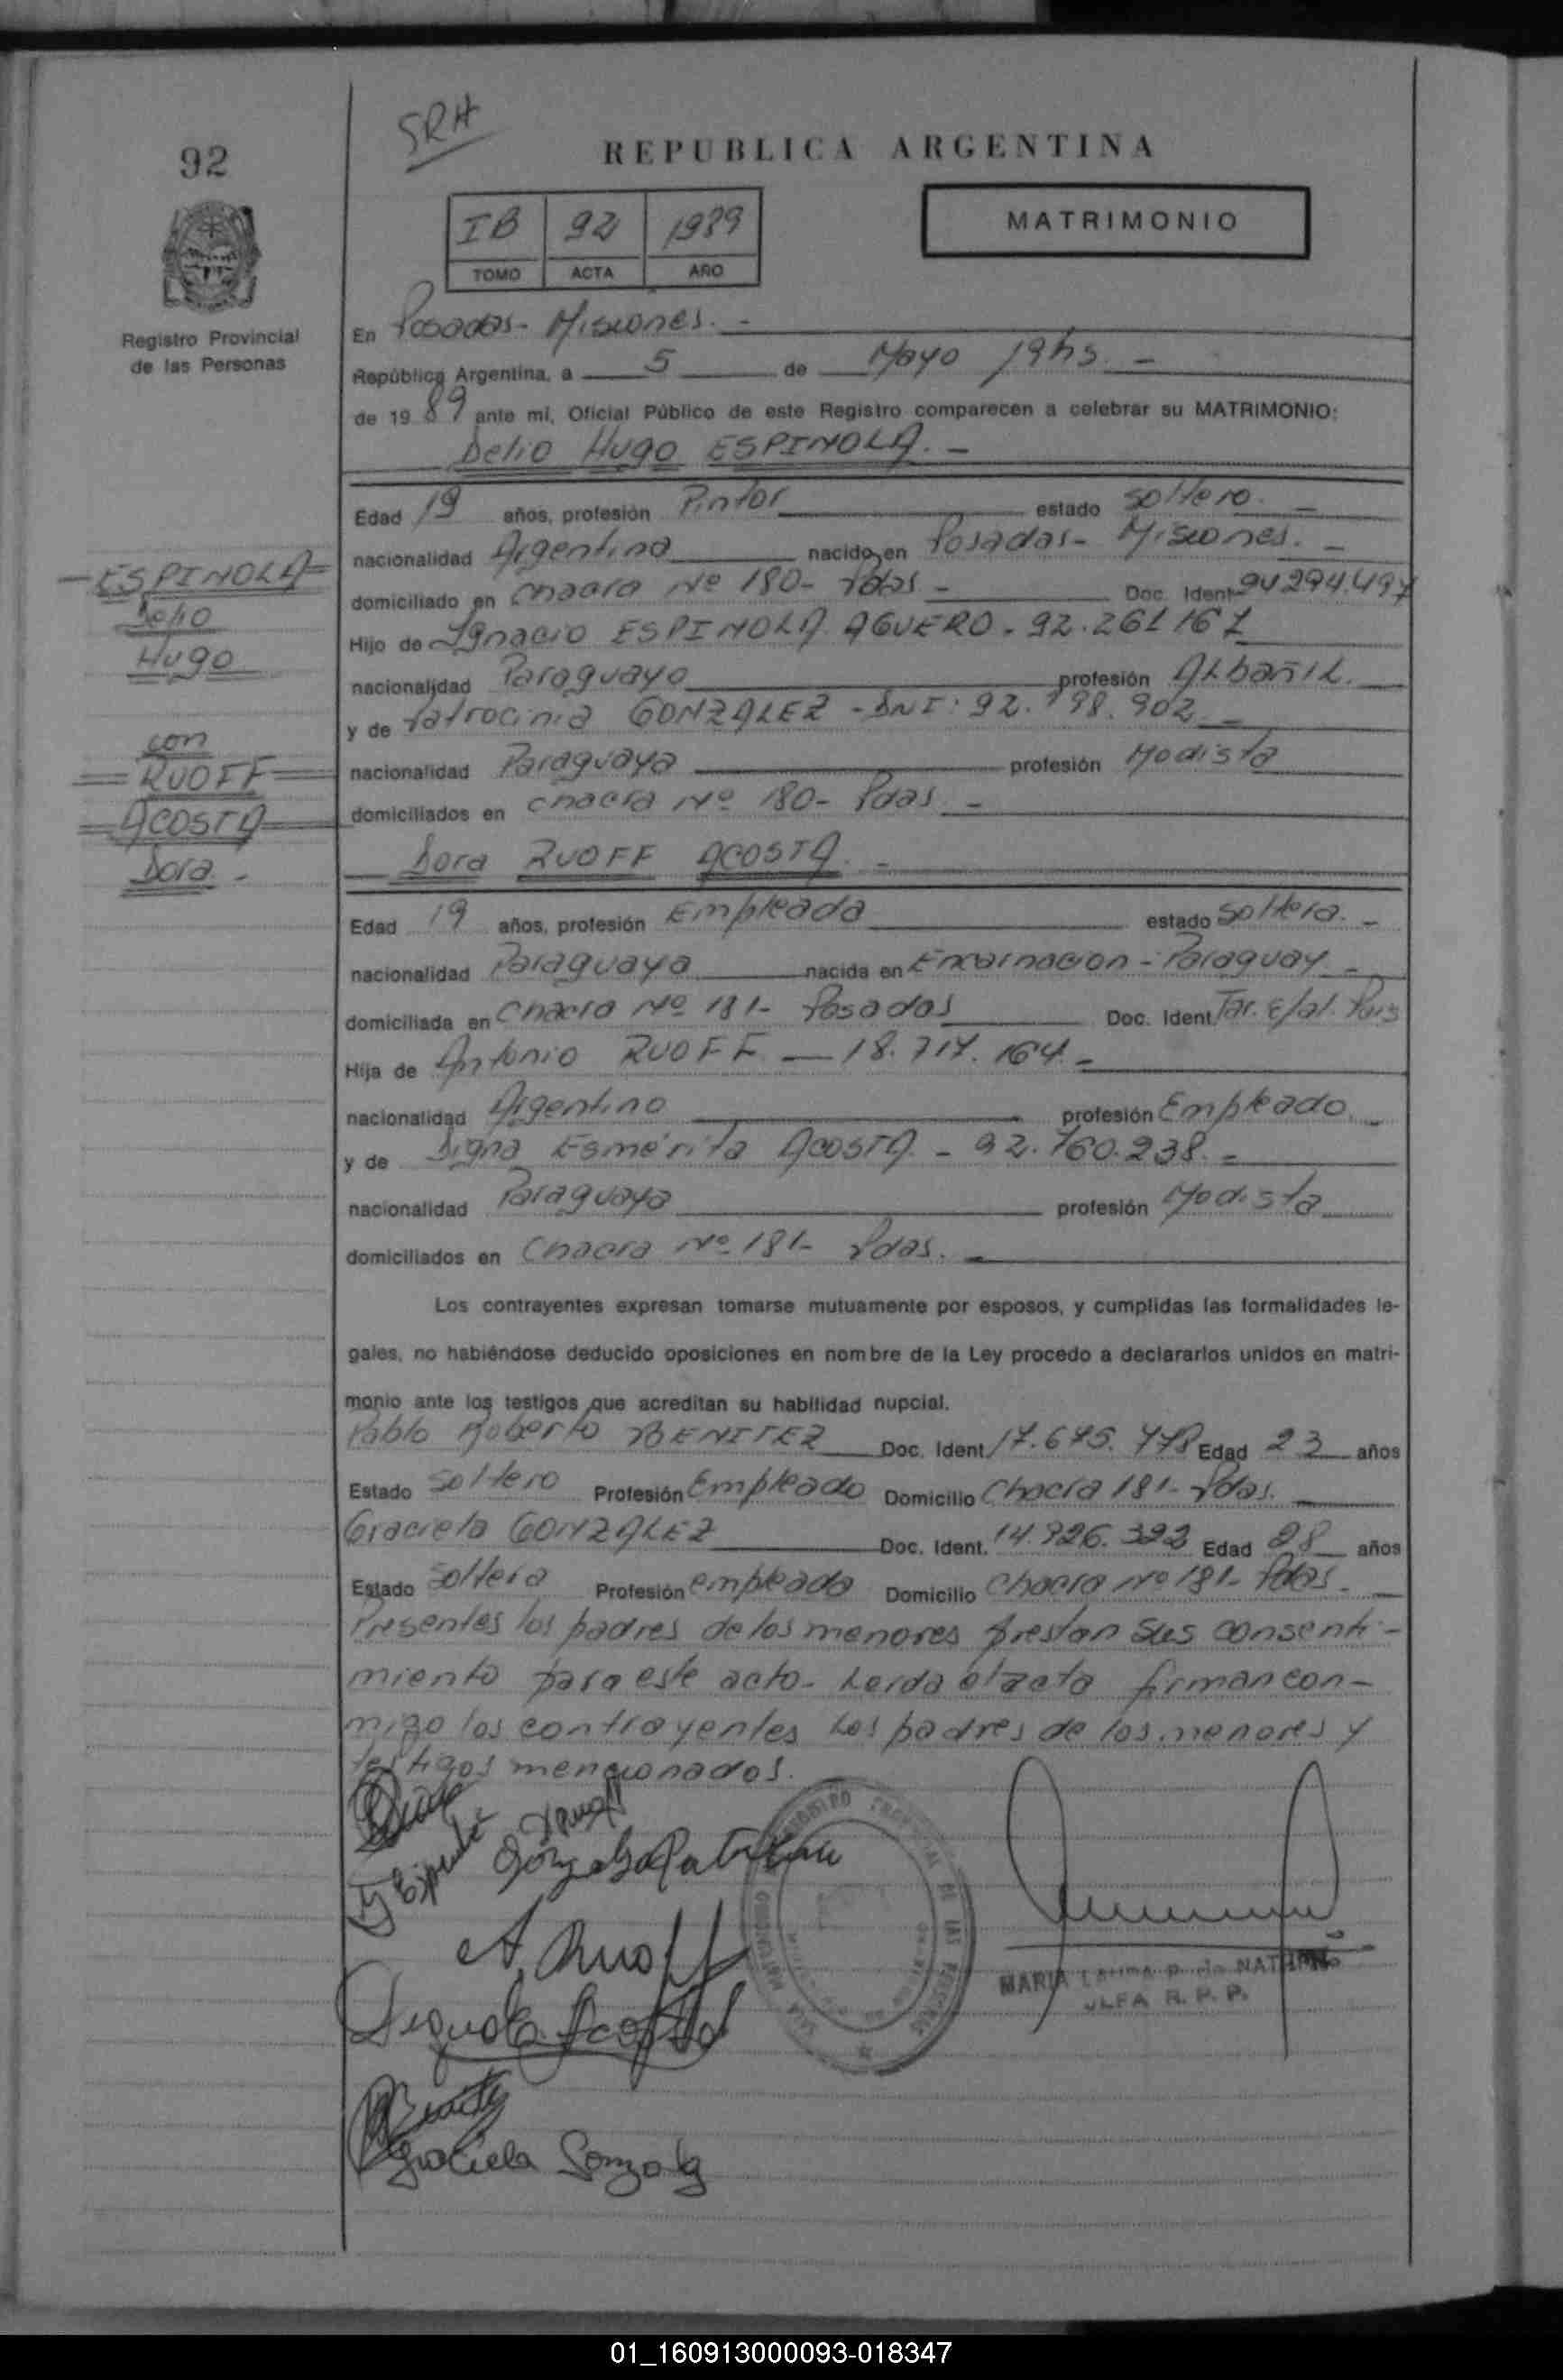 92
SRH
REPUBLICA ARGENTINA
IB 92 1989
TOMO ACTA AÑO
MATRIMONIO
Registro Provincial
de las Personas
En Posadas- Misiones. -
República Argentina, a 5 de Mayo 19hs. -
de 1989 ante mi, Oficial Público de este Registro comparecen a celebrar su MATRIMONIO:
Delio Hugo ESPINOLA. -
Edad 19 años, profesión Pintor estado soltero. -
nacionalidad Argentina nacido en Posadas- Misiones. -
domiciliado en Chacra Nº 180- Pdas - Doc. Ident
Hijo de Ignacio ESPINOLA AGUERO. 92.261167
nacionalidad Paraguaya profesión Albañil.
y de Patrocinia GONZALEZ - DNI: 92.198.902 -
nacionalidad Paraguaya profesión Modista
domiciliados en chacra Nº 180- Pdas -
Dora RUOFF ACOSTA. -
-ESPINOLA=
Delio
Hugo
con
=RUOFF=
=ACOSTA=
Dora. -
Edad 19 años, profesión Empleada estado soltera. -
nacionalidad Paraguaya nacida en Encarnacion - Paraguay -
domiciliada en Chacra Nº 181- Posadas Doc. Ident
Hija de Antonio RUOFF - 18.717.164. -
nacionalidad Argentino profesión Empleado.
y de Digna Esmérita ACOSTA - 92.760.238. -
nacionalidad Paraguaya profesión Modista
domiciliados en Chacra Nº 181- Pdas. -
Los contrayentes expresan tomarse mutuamente por esposos, y cumplidas las formalidades le-
gales, no habiéndose deducido oposiciones en nombre de la Ley procedo a declararlos unidos en matri-
monio ante los testigos que acreditan su habilidad nupcial.
Pablo Roberto BENITEZ Doc. Ident 17.675.778 Edad 23 años
Estado soltero Profesión Empleado Domicilio Chacra 181- Pdas.
Graciela GONZALEZ Doc. Ident. 14.926.322 Edad 28 años
Estado soltera Profesión empleada Domicilio Chacra Nº 181- Pdas. -
Presentes los padres de los menores prestan sus consenti-
miento para este acto- Leida el acta firman con-
migo los contrayentes los padres de los menores y
testigos mencionados.
A. Ruoff
Graciela Gonzalez
MARIA LAURA P. de
JEFA R. P. P.
01_160913000093-018347